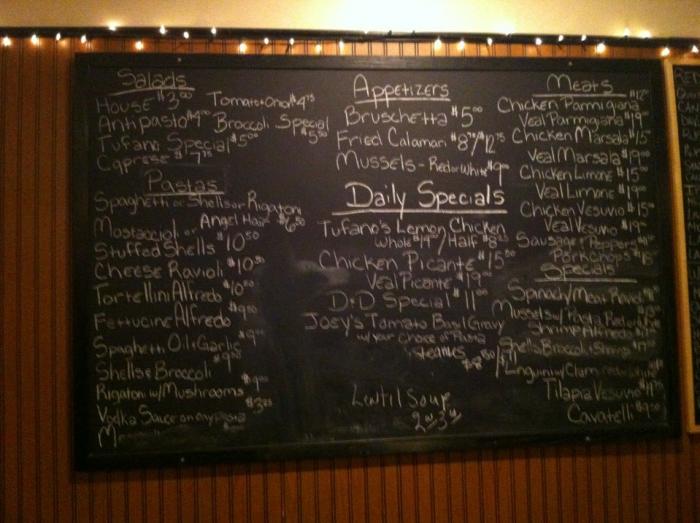 Salads
House $3.00 Tomato+Onion $4.75
Antipasto Broccoli Special $5.50
Tufano Special $5.00
Caprese $7.75
Pastas
Spaghetti or Shells or Rigatoni
Mostaccioli or Angel Hair $6.50
Stuffed Shells $10.50
Cheese Ravioli $10.50
Tortellini Alfredo
Fettucine Alfredo
Spaghetti Oil & Garlic
Shells & Broccoli
Rigatoni w/Mushrooms
Vodka Sauce on any pasta
Appetizers
Bruschetta $5.00
Fried Calamari
Mussels - Red or White $9.00
Daily Specials
Tufano's Lemon Chicken
Whole Half
Chicken Picante $15.50
Veal Picante $19.00
D+D Special $11.00
Joey's Tomato Basil Gravy
w/your choice of Pasta
Lentil Soup
Meats
Chicken Parmigiana
Veal Parmigiana $19
Chicken Marsala $15
Veal Marsala $19
Chicken Limone $15
Veal Limone $19
Chicken Vesuvio $15
Veal Vesuvio $19
Sausage + Peppers
Porkchops
Specials
Spinach/Meat Ravioli
Mussels w/Pasta Red or
Shrimp Alfredo
Shells Broccoli + Shrimp
Linguini w/Clam
Tilapia Vesuvio
Cavatelli